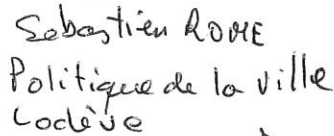 Sebastien ROME
Politique de la ville
Lodève